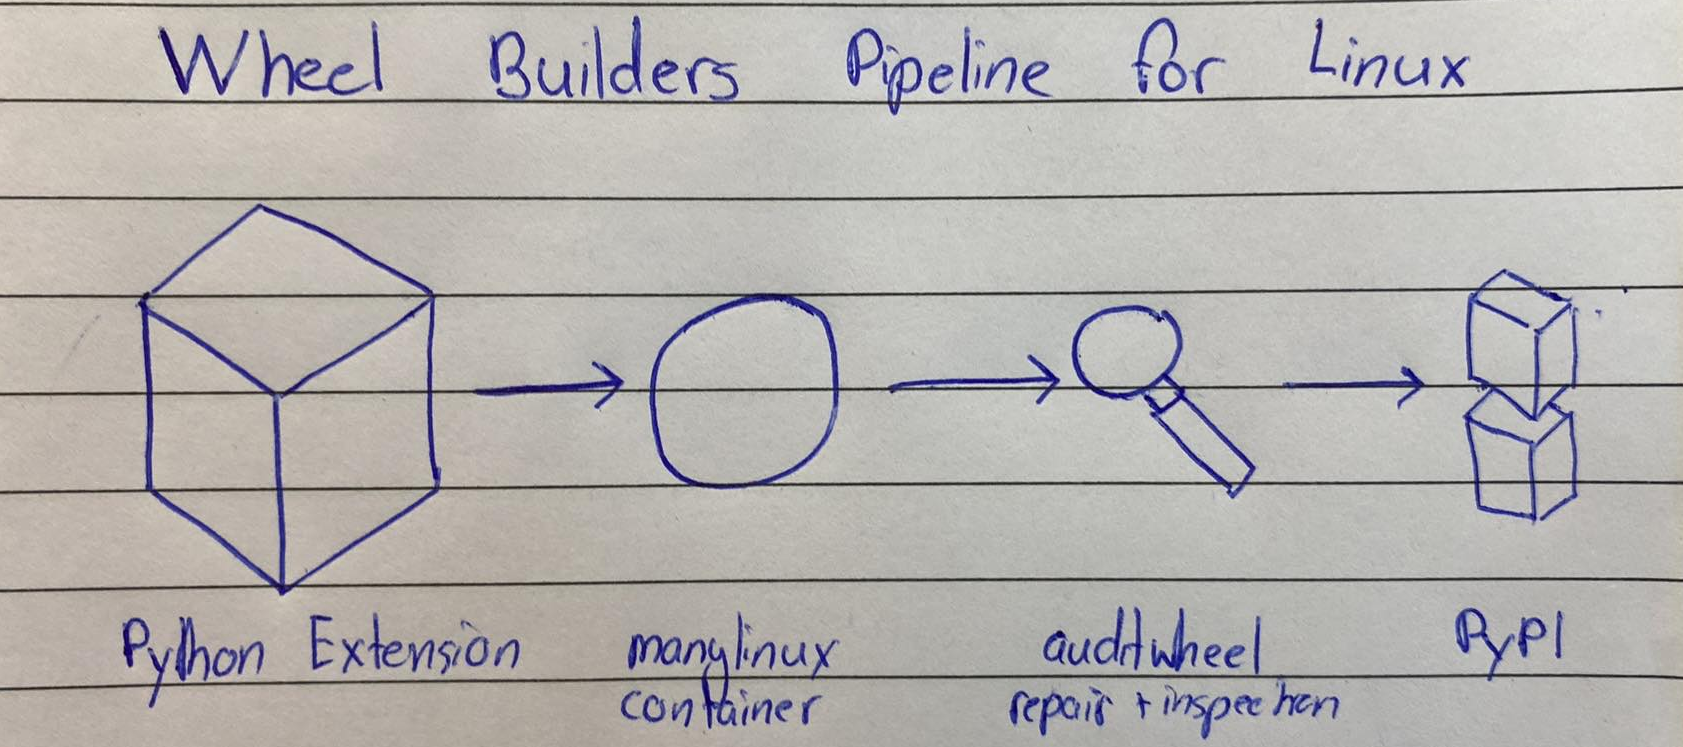 Wheel Builders Pipeline for Linux
Python Extension
manylinux
container
auditwheel
repair + inspection
PyPI